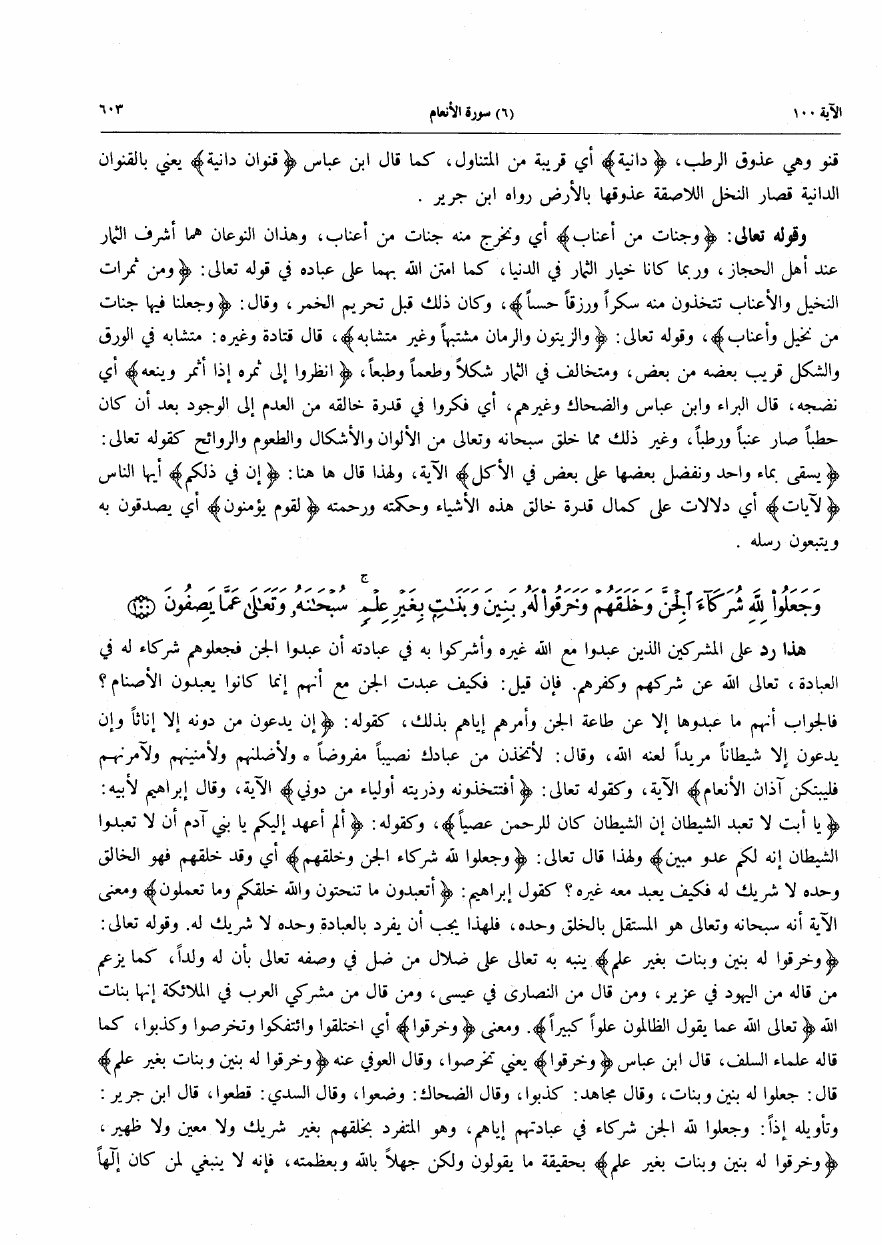 الآية ١٠٠
(٦) سورة الأنعام
٦٠٣
قنو وهي عذوق الرطب، ﴿دانية﴾ أي قريبة من المتناول، كما قال ابن عباس ﴿قنوان دانية﴾ يعني بالقنوان
الدانية قصار النخل اللاصقة عذوقها بالأرض رواه ابن جرير .
وقوله تعالى: ﴿وجنات من أعناب﴾ أي ونخرج منه جنات من أعناب، وهذان النوعان هما أشرف الثمار
عند أهل الحجاز، وربما كانا خيار الثمار في الدنيا، كما امتن الله بهما على عباده في قوله تعالى: ﴿ومن ثمرات
النخيل والأعناب تتخذون منه سكراً ورزقاً حسناً﴾، وكان ذلك قبل تحريم الخمر، وقال: ﴿وجعلنا فيها جنات
من نخيل وأعناب﴾، وقوله تعالى: ﴿والزيتون والرمان مشتبهاً وغير متشابه﴾، قال قتادة وغيره: متشابه في الورق
والشكل قريب بعضه من بعض، ومتخالف في الثمار شكلاً وطعماً وطبعاً، ﴿انظروا إلى ثمره إذا أثمر وينعه﴾ أي
نضجه، قال البراء وابن عباس والضحاك وغيرهم، أي فكروا في قدرة خالقه من العدم إلى الوجود بعد أن كان
حطباً صار عنباً ورطباً، وغير ذلك مما خلق سبحانه وتعالى من الألوان والأشكال والطعوم والروائح كقوله تعالى:
﴿يسقى بماء واحد ونفضل بعضها على بعض في الأكل﴾ الآية، ولهذا قال ها هنا: ﴿إن في ذلكم﴾ أيها الناس
﴿لآيات﴾ أي دلالات على كمال قدرة خالق هذه الأشياء وحكمته ورحمته ﴿لقوم يؤمنون﴾ أي يصدقون به
ويتبعون رسله .
وَجَعَلُوا۟ لِلَّهِ شُرَكَآءَ ٱلْجِنَّ وَخَلَقَهُمْ وَخَرَقُوا۟ لَهُۥ بَنِينَ وَبَنَٰتٍۭ بِغَيْرِ عِلْمٍۚ سُبْحَٰنَهُۥ وَتَعَٰلَىٰ عَمَّا يَصِفُونَ ١٠٠
هذا رد على المشركين الذين عبدوا مع الله غيره وأشركوا به في عبادته أن عبدوا الجن فجعلوهم شركاء له في
العبادة، تعالى الله عن شركهم وكفرهم. فإن قيل: فكيف عبدت الجن مع أنهم إنما كانوا يعبدون الأصنام؟
فالجواب أنهم ما عبدوها إلا عن طاعة الجن وأمرهم إياهم بذلك، كقوله: ﴿إن يدعون من دونه إلا إناثاً وإن
يدعون إلا شيطاناً مريداً لعنه الله، وقال: لأتخذن من عبادك نصيباً مفروضاً * ولأضلنهم ولأمنينهم ولآمرنهم
فليبتكن آذان الأنعام﴾ الآية، وكقوله تعالى: ﴿أفتتخذونه وذريته أولياء من دوني﴾ الآية، وقال إبراهيم لأبيه:
﴿يا أبت لا تعبد الشيطان إن الشيطان كان للرحمن عصياً﴾، وكقوله: ﴿ألم أعهد إليكم يا بني آدم أن لا تعبدوا
الشيطان إنه لكم عدو مبين﴾ ولهذا قال تعالى: ﴿وجعلوا لله شركاء الجن وخلقهم﴾ أي وقد خلقهم فهو الخالق
وحده لا شريك له فكيف يعبد معه غيره؟ كقول إبراهيم: ﴿أتعبدون ما تنحتون والله خلقكم وما تعملون﴾ ومعنى
الآية أنه سبحانه وتعالى هو المستقل بالخلق وحده، فلهذا يجب أن يفرد بالعبادة وحده لا شريك له. وقوله تعالى:
﴿وخرقوا له بنين وبنات بغير علم﴾ ينبه به تعالى على ضلال من ضل في وصفه تعالى بأن له ولداً، كما يزعم
من قاله من اليهود في عزير، ومن قال من النصارى في عيسى، ومن قال من مشركي العرب في الملائكة إنها بنات
الله ﴿تعالى الله عما يقول الظالمون علواً كبيراً﴾. ومعنى ﴿وخرقوا﴾ أي اختلقوا وائتفكوا وتخرصوا وكذبوا، كما
قاله علماء السلف، قال ابن عباس ﴿وخرقوا﴾ يعني تخرصوا، وقال العوفي عنه ﴿وخرقوا له بنين وبنات بغير علم﴾
قال: جعلوا له بنين وبنات، وقال مجاهد: كذبوا، وقال الضحاك: وضعوا، وقال السدي: قطعوا، قال ابن جرير:
وتأويله إذاً: وجعلوا لله الجن شركاء في عبادتهم إياهم، وهو المتفرد بخلقهم بغير شريك ولا معين ولا ظهير،
﴿وخرقوا له بنين وبنات بغير علم﴾ بحقيقة ما يقولون ولكن جهلاً بالله وبعظمته، فإنه لا ينبغي لمن كان إلٰهاً